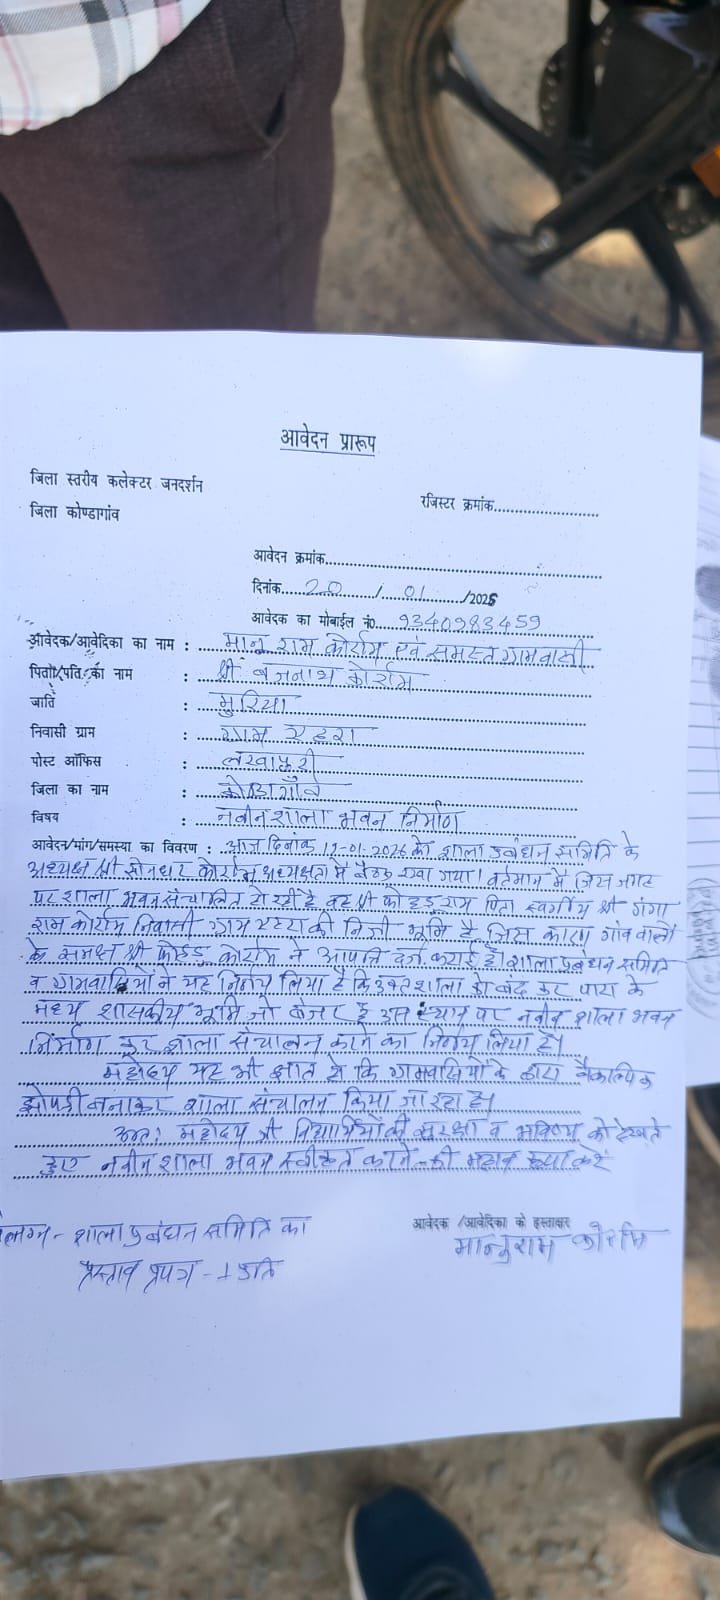 आवेदन प्रारूप
जिला स्तरीय कलेक्टर जनदर्शन
जिला कोण्डागांव
रजिस्टर क्रमांक
आवेदन क्रमांक
दिनांक 20 / 01 /2026
आवेदक का मोबाईल नं० 9340983459
आवेदक/आवेदिका का नाम : मानु राम कोर्राम एवं समस्त ग्रामवासी
पिता/पति का नाम : श्री बजनाथ कोर्राम
जाति : मुरिया
निवासी ग्राम : ग्राम
पोस्ट ऑफिस : लखापुरी
जिला का नाम : कोण्डागाँव
विषय : नवीन शाला भवन निर्माण
आवेदन/मांग/समस्या का विवरण : आज दिनांक 12-01-2026 को शाला प्रबंधन समिति के
अध्यक्ष श्री सोनधर कोर्राम अध्यक्षता में बैठक रखा गया। वर्तमान में जिस जगह
पर शाला भवन संचालित हो रही है वह श्री कोहड़ राम पिता स्वर्गीय श्री गंगा
राम कोर्राम निवासी ग्राम की निजी भूमि है जिस कारण गांव वालों
के समक्ष श्री कोहड़ कोर्राम ने आपत्ति दर्ज कराई है। शाला प्रबंधन समिति
व ग्रामवासियों ने यह निर्णय लिया है कि उक्त शाला को बंद कर पारा के
मध्य शासकीय भूमि जो बंजर है उस स्थान पर नवीन शाला भवन
निर्माण कर शाला संचालन करने का निर्णय लिया है।
महोदय यह भी ज्ञात हो कि ग्रामवासियों के द्वारा वैकल्पिक
झोपड़ी बनाकर शाला संचालन किया जा रहा है।
अतः महोदय जी विद्यार्थियों की सुरक्षा व भविष्य को देखते
हुए नवीन शाला भवन स्वीकृत करने की महान कृपा करें
संलग्न - शाला प्रबंधन समिति का
प्रस्ताव प्रपत्र - 1 प्रति
आवेदक /आवेदिका के हस्ताक्षर
मानुराम कोर्राम